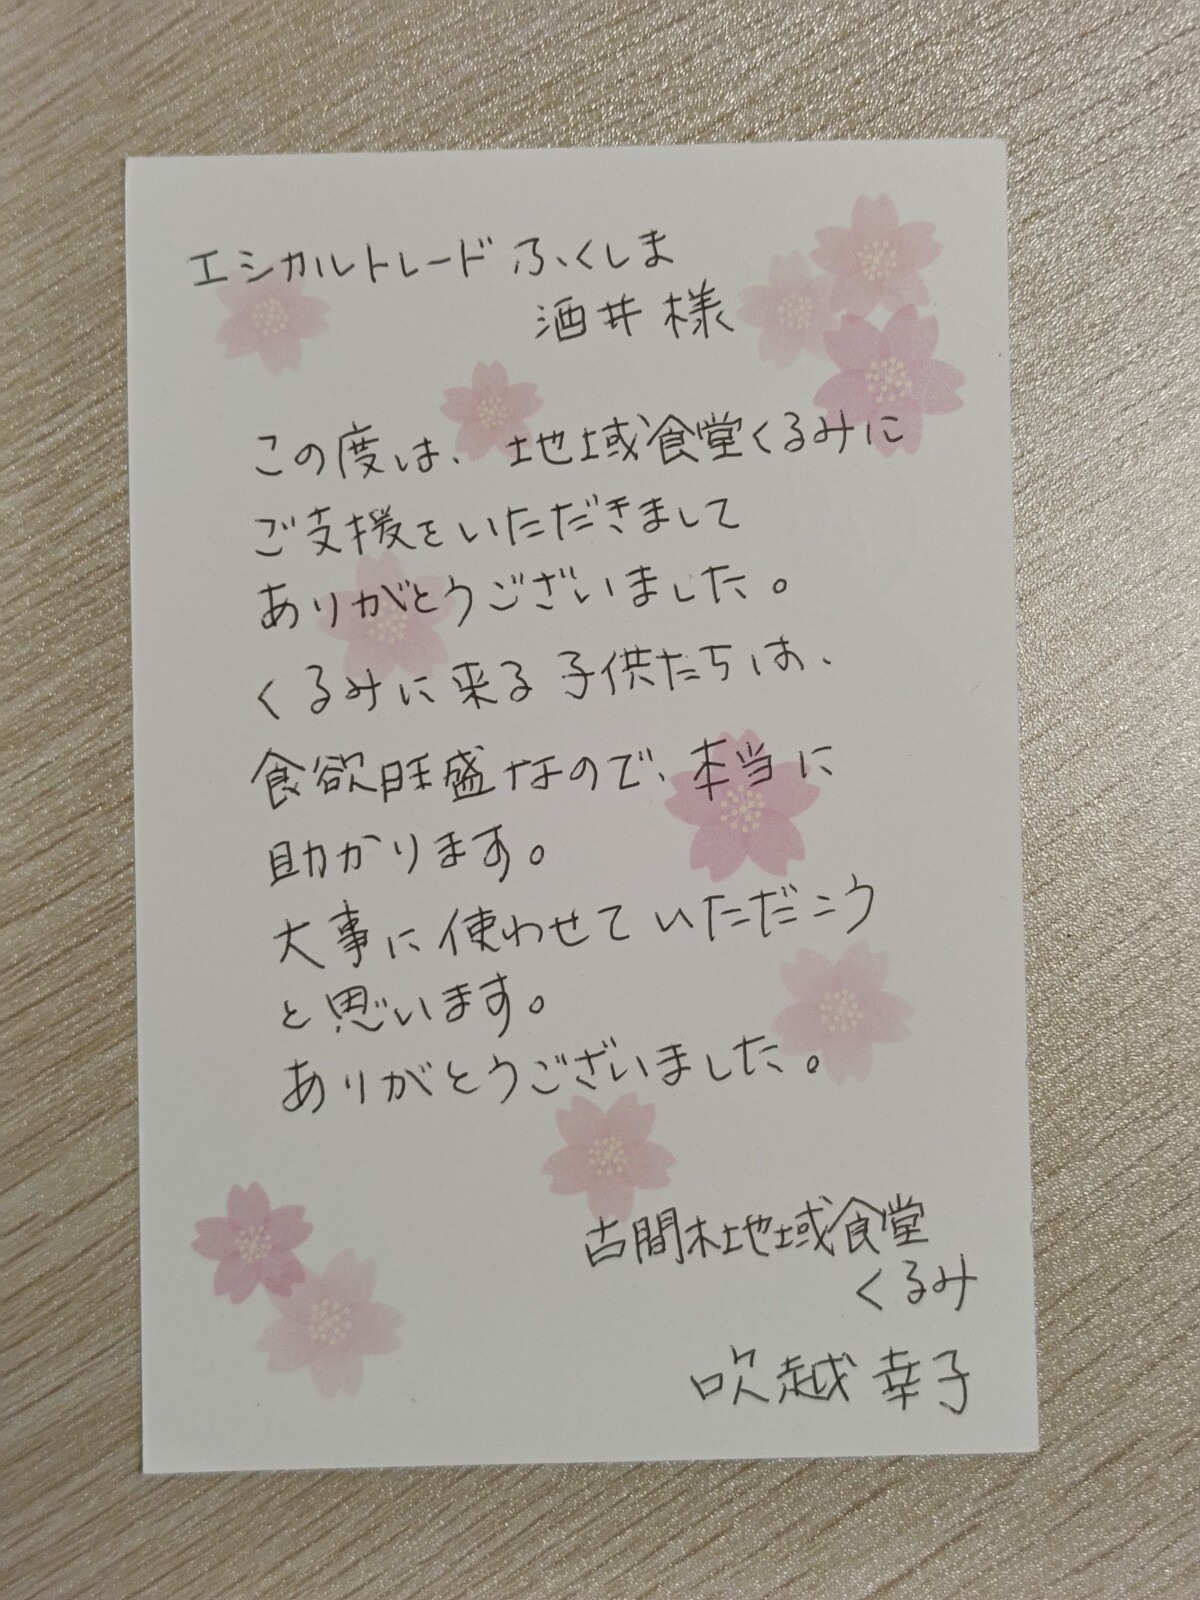 エシカルトレードふくしま
酒井様
この度は、地域食堂くるみに
ご支援をいただきまして
ありがとうございました。
くるみに来る子供たちは、
食欲旺盛なので、本当に
助かります。
大事に使わせていただこう
と思います。
ありがとうございました。
古間木地域食堂
くるみ
吹越幸子